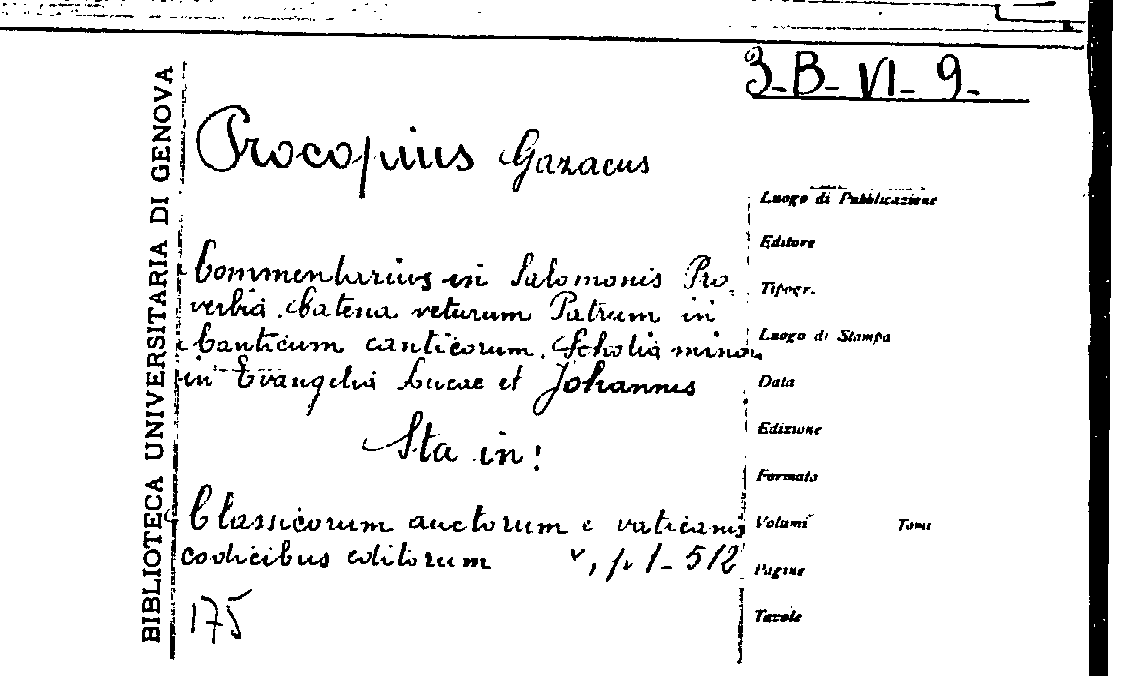 3-B-VI-9-
BIBLIOTECA UNIVERSITARIA DI GENOVA
Procopius Gazaeus
Commentarius in Salomonis Pro-
verbia. Catena veterum Patrum in
Canticum canticorum. Scholia minora
in Evangelia Lucae et Johannis
Sta in:
Classicorum auctorum e vaticanis
codicibus editorum v, p. 1-512
175
Luogo di Pubblicazione
Editore
Tipogr.
Luogo di Stampa
Data
Edizione
Formato
Volumi Tomi
Pagine
Tavole